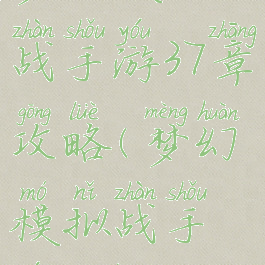 zhàn shǒu yóu zhāng
战手游37章
gōng lüè mèng huàn
攻略(梦幻
mó nǐ zhàn shǒu
模拟战手